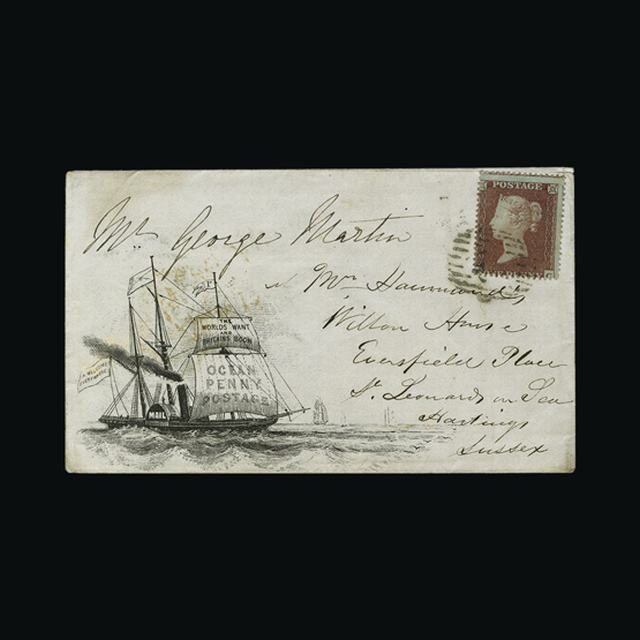 Mr George Martin
at Mrs Hammond's
Wilton House
Eversfield Place
St. Leonards on Sea
Hastings
Sussex
POSTAGE
THE
WORLDS WANT
AND
BRITAINS BOON
OCEAN
PENNY
POSTAGE